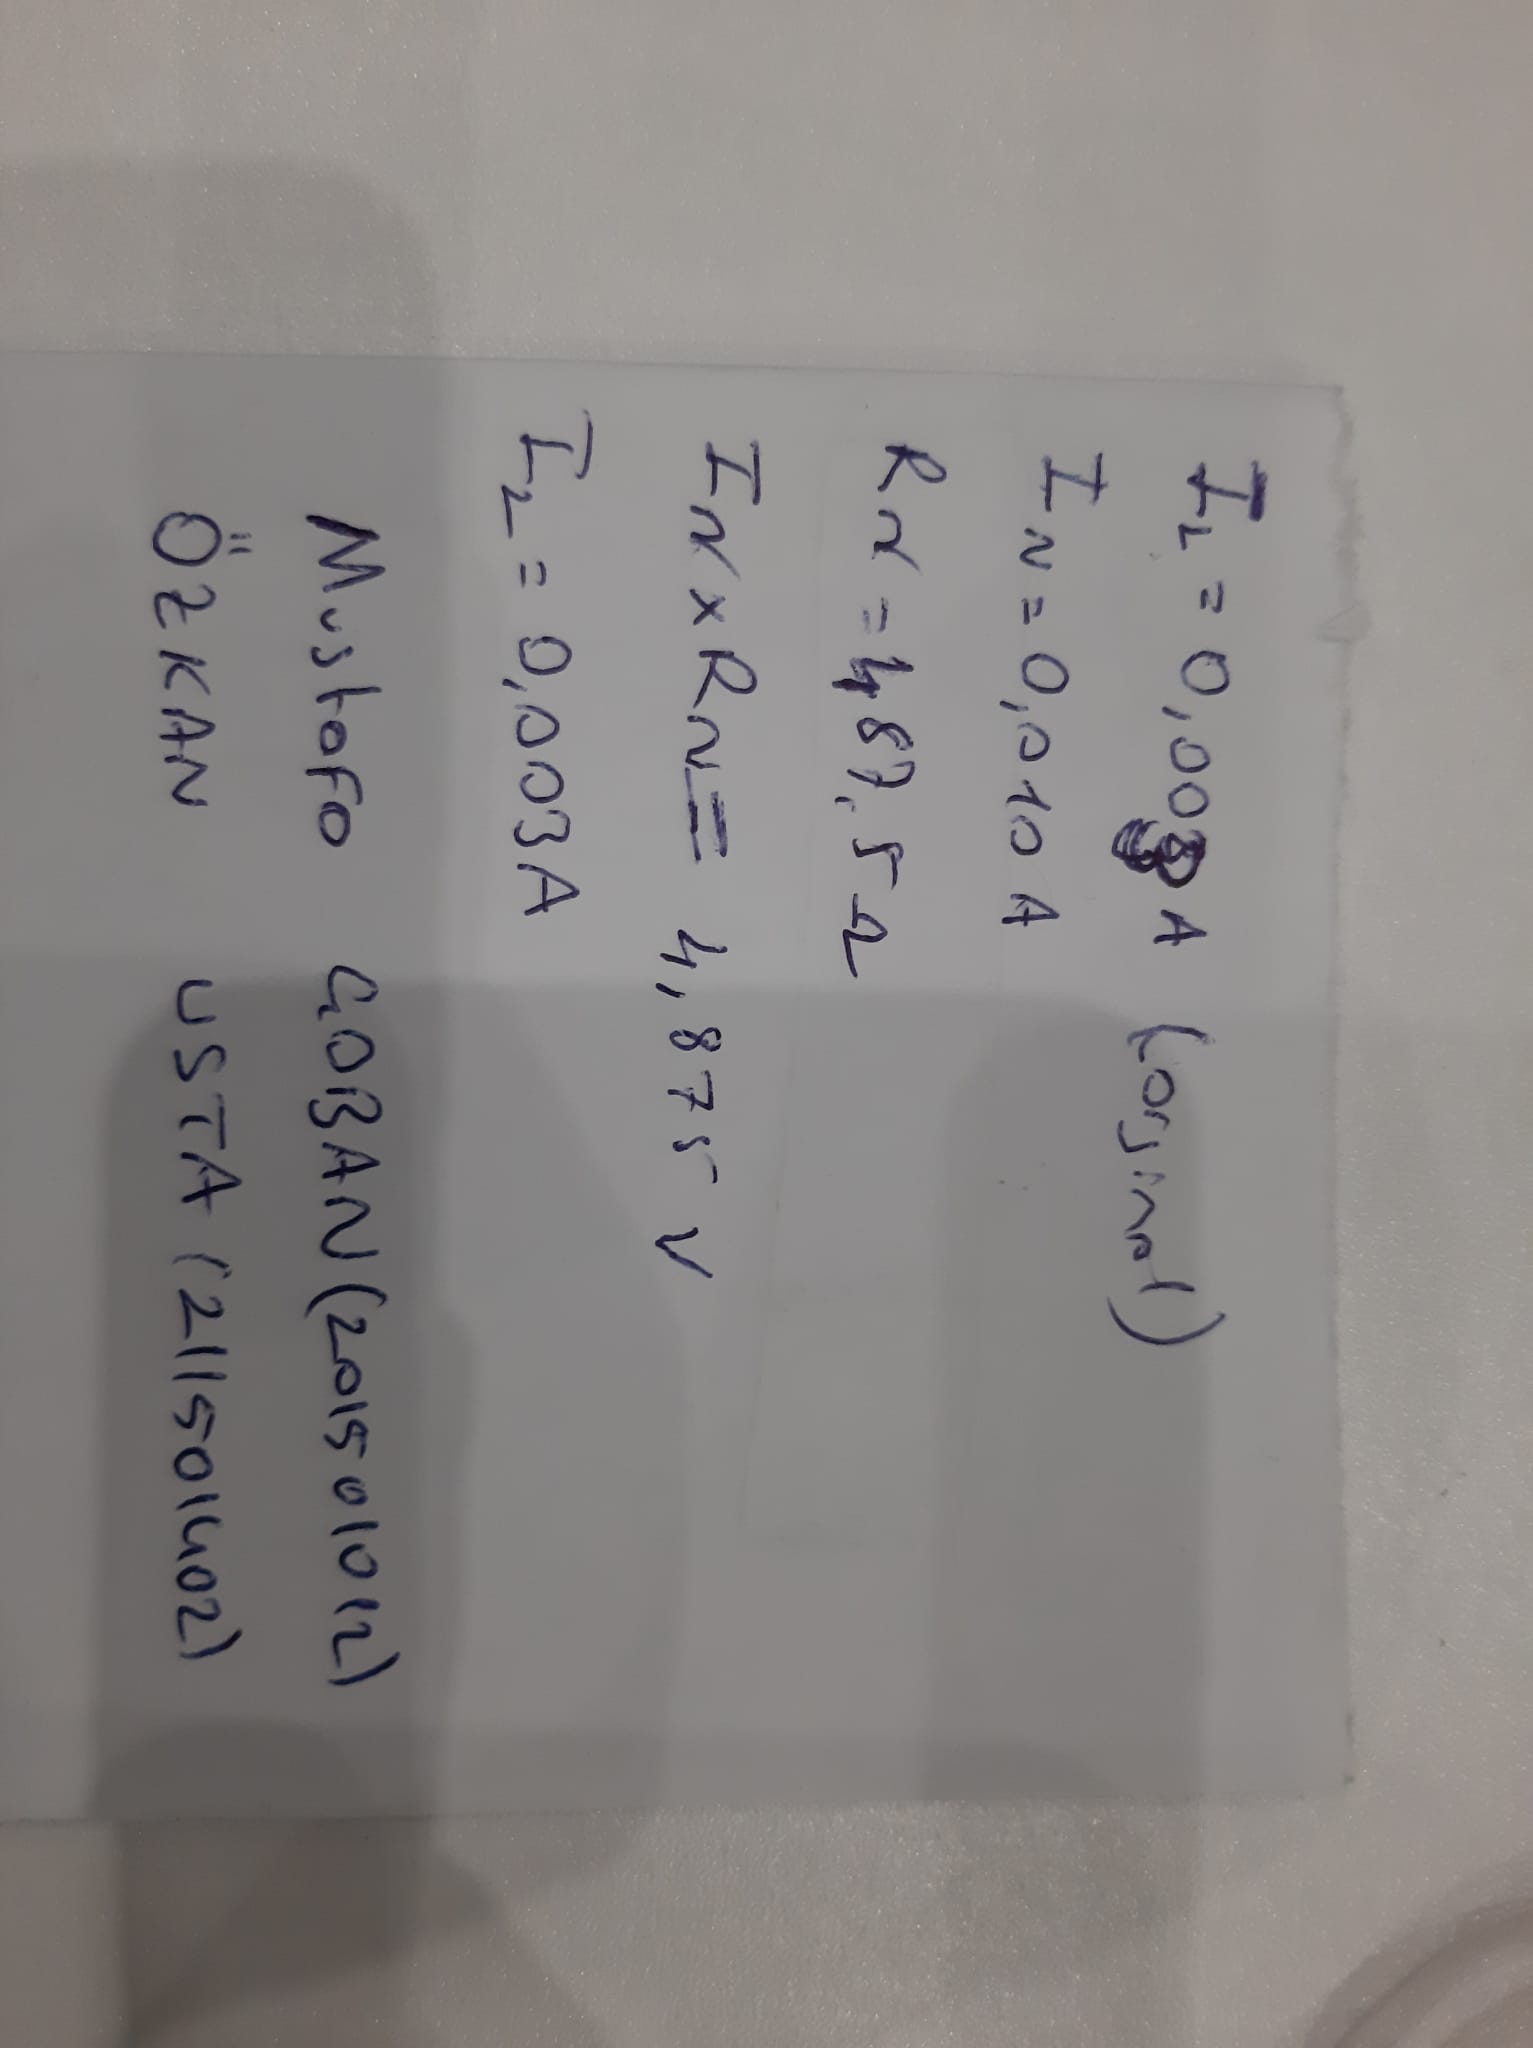 IL = 0,003A (orjinal)
IN = 0,010 A
RN = 487,5 Ω
IN x RN = 4,875 V
IL = 0,003A
Mustafa ÇOBAN (201501012)
ÖZKAN USTA (211501402)